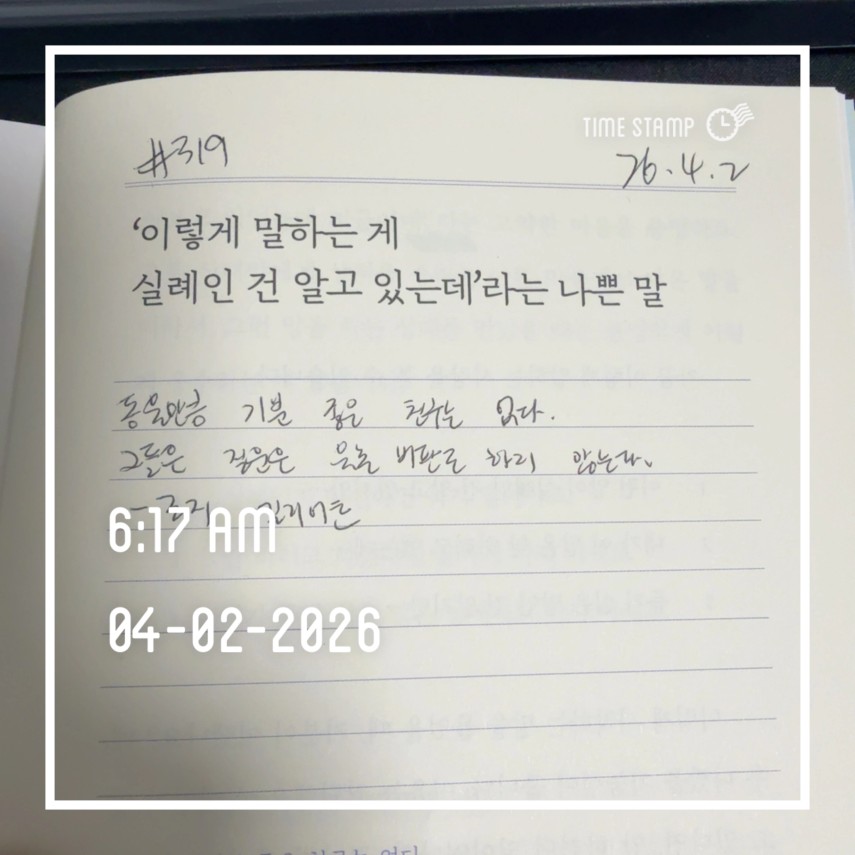 TIME STAMP
#319
26.4.2
‘이렇게 말하는 게
실례인 건 알고 있는데’라는 나쁜 말
동물만큼 기분 좋은 친구는 없다.
그들은 질문은 물론 비판도 하지 않는다.
6:17 AM
04-02-2026